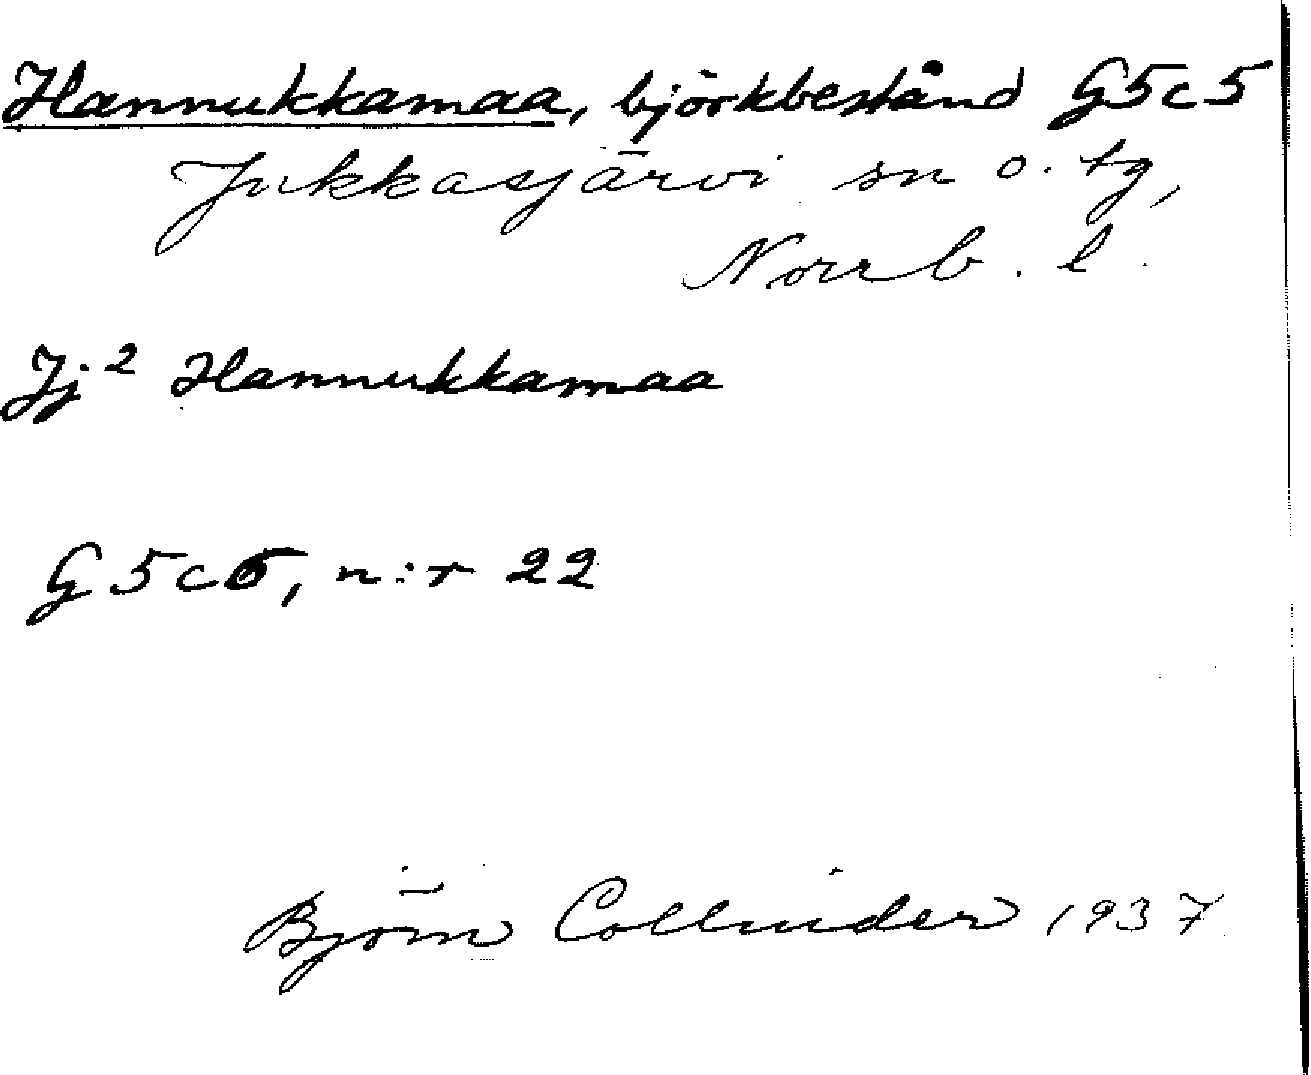 Hannukkamaa, björkbestånd G5c5
Jukkasjärvi sn o. tg,
Norrb. l.
Jj² Hannukkamaa
G5c5, n:r 22
Björn Collinder 1937